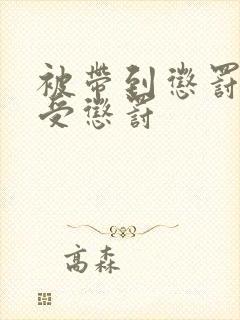 被帶到懲罰
受懲罰
高森